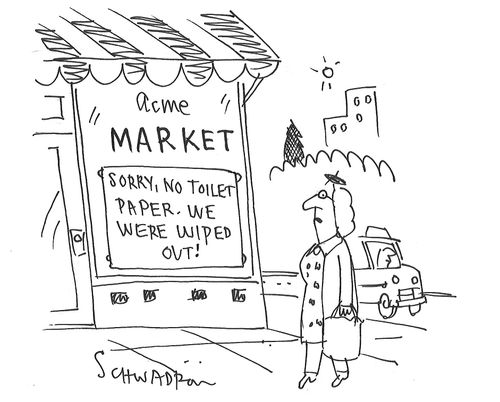 acme
MARKET
SORRY, NO TOILET
PAPER. WE
WERE WIPED
OUT!
SCHWADRON